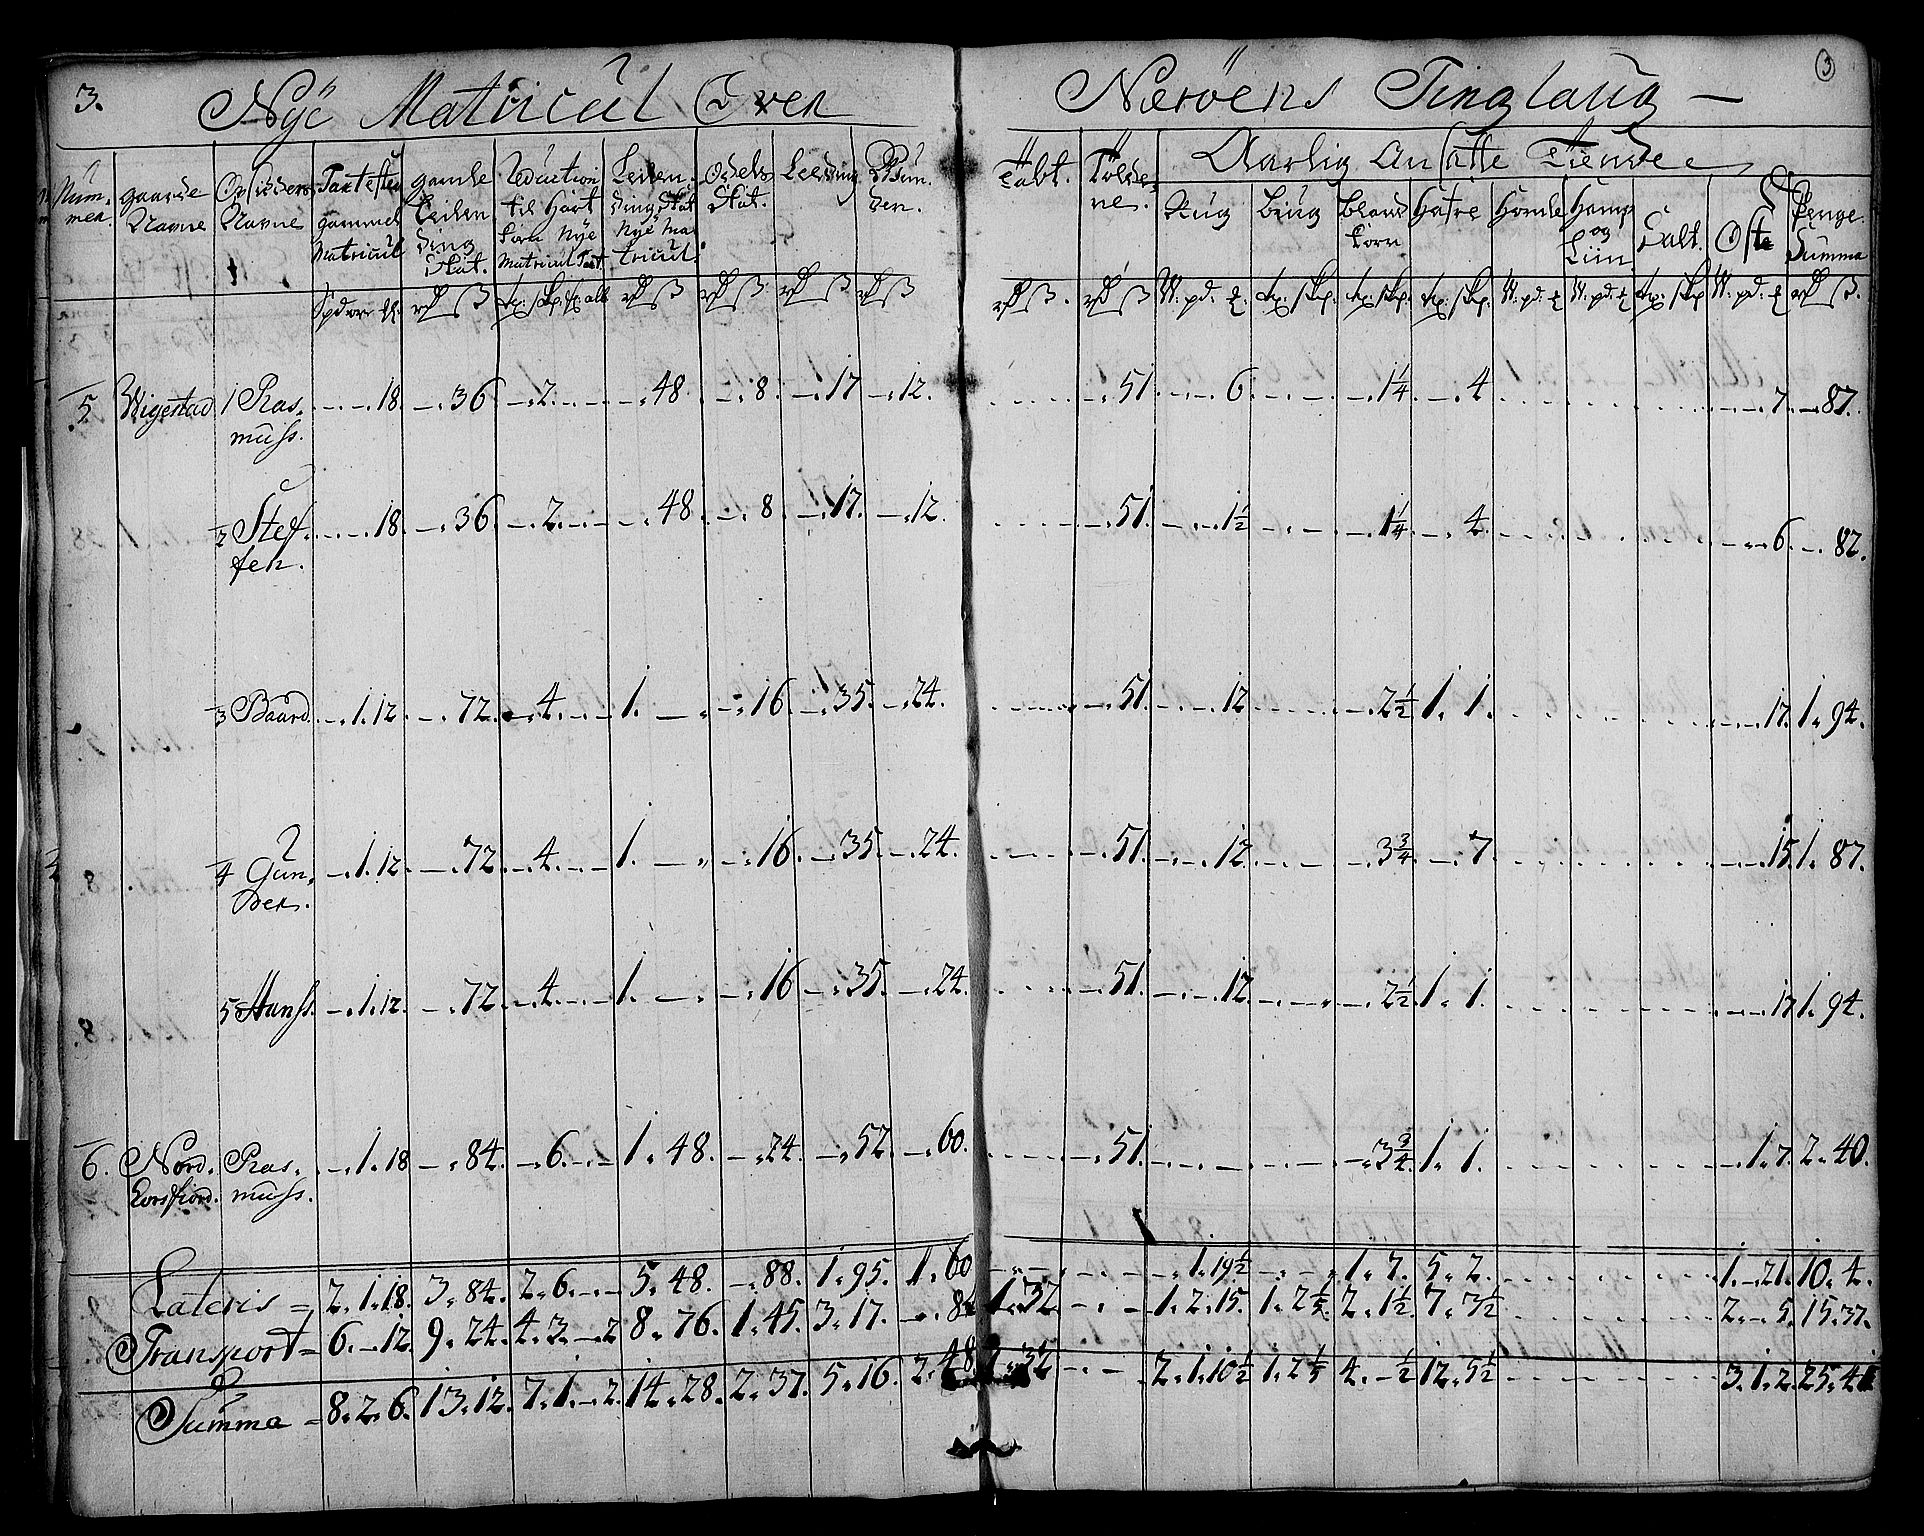 3.
Nÿe Matricul Over Nærøens Tinglaug — 3
Num-mer. gaarde Navne Opsidders Navne Taxt efter gammel Matricul gamle Leilending Skat. Reduction til Hart Korn Nye Matricul Taxt. Leilending Skat Nye Matricul. Odels Skat. Leeding Tabt. Aarlig Ansatte Tiende
Rug Biug Bland Korn Hafre Homle Hamp og Liin Salt. Oste Penge Summa
5 Wigestad 1 Rasmuss. 18. 36 2 48. 8. 17 12. 51 6 1 1/4 4 7. 87.
2 Steffen. 18. 36. 2. 48. 8 17. 12. 51. 1 1/2 1 1/4 4. 6. 82.
3 Baard. 1. 12. 72. 4. 1. 16. 35. 24. 51. 12 2 1/2 1. 1. 17. 1. 94.
4 Gunder. 1. 12. 72. 4. 1. 16. 35. 24. 51. 12 3 3/4 7. 15. 1. 87.
5 Hanss. 1. 12. 72. 4. 1. 16 35. 24. 51. 12. 2 1/2 1. 1. 17 1. 94.
6. Nord. Korsfiord. Rasmuss. 1. 18 84. 6. 1. 48. 24. 52 60. 51. 3 3/4 1. 1. 1. 7. 2. 40.
Lateris = 2. 1. 18. 3. 84. 2. 6. 5. 48. 88. 1. 95. 1. 60 1. 19 1/2 1. 7. 5. 2. 1. 21. 10. 4.
Transport = 6. 12. 9. 24. 4. 3. 2 8. 76. 1. 45. 3. 17. 84 1. 32 1. 2. 15. 1. 2 2. 1 1/2 7. 3 1/2 2. 5. 15. 37.
Summa = 8. 2. 6. 13. 12. 7. 1. 2. 14. 28. 2. 37. 5. 16. 2. 48 1. 32 2. 1. 10 1/2 1. 2 4. 1/2 12. 5 1/2 3. 1. 2. 25. 41